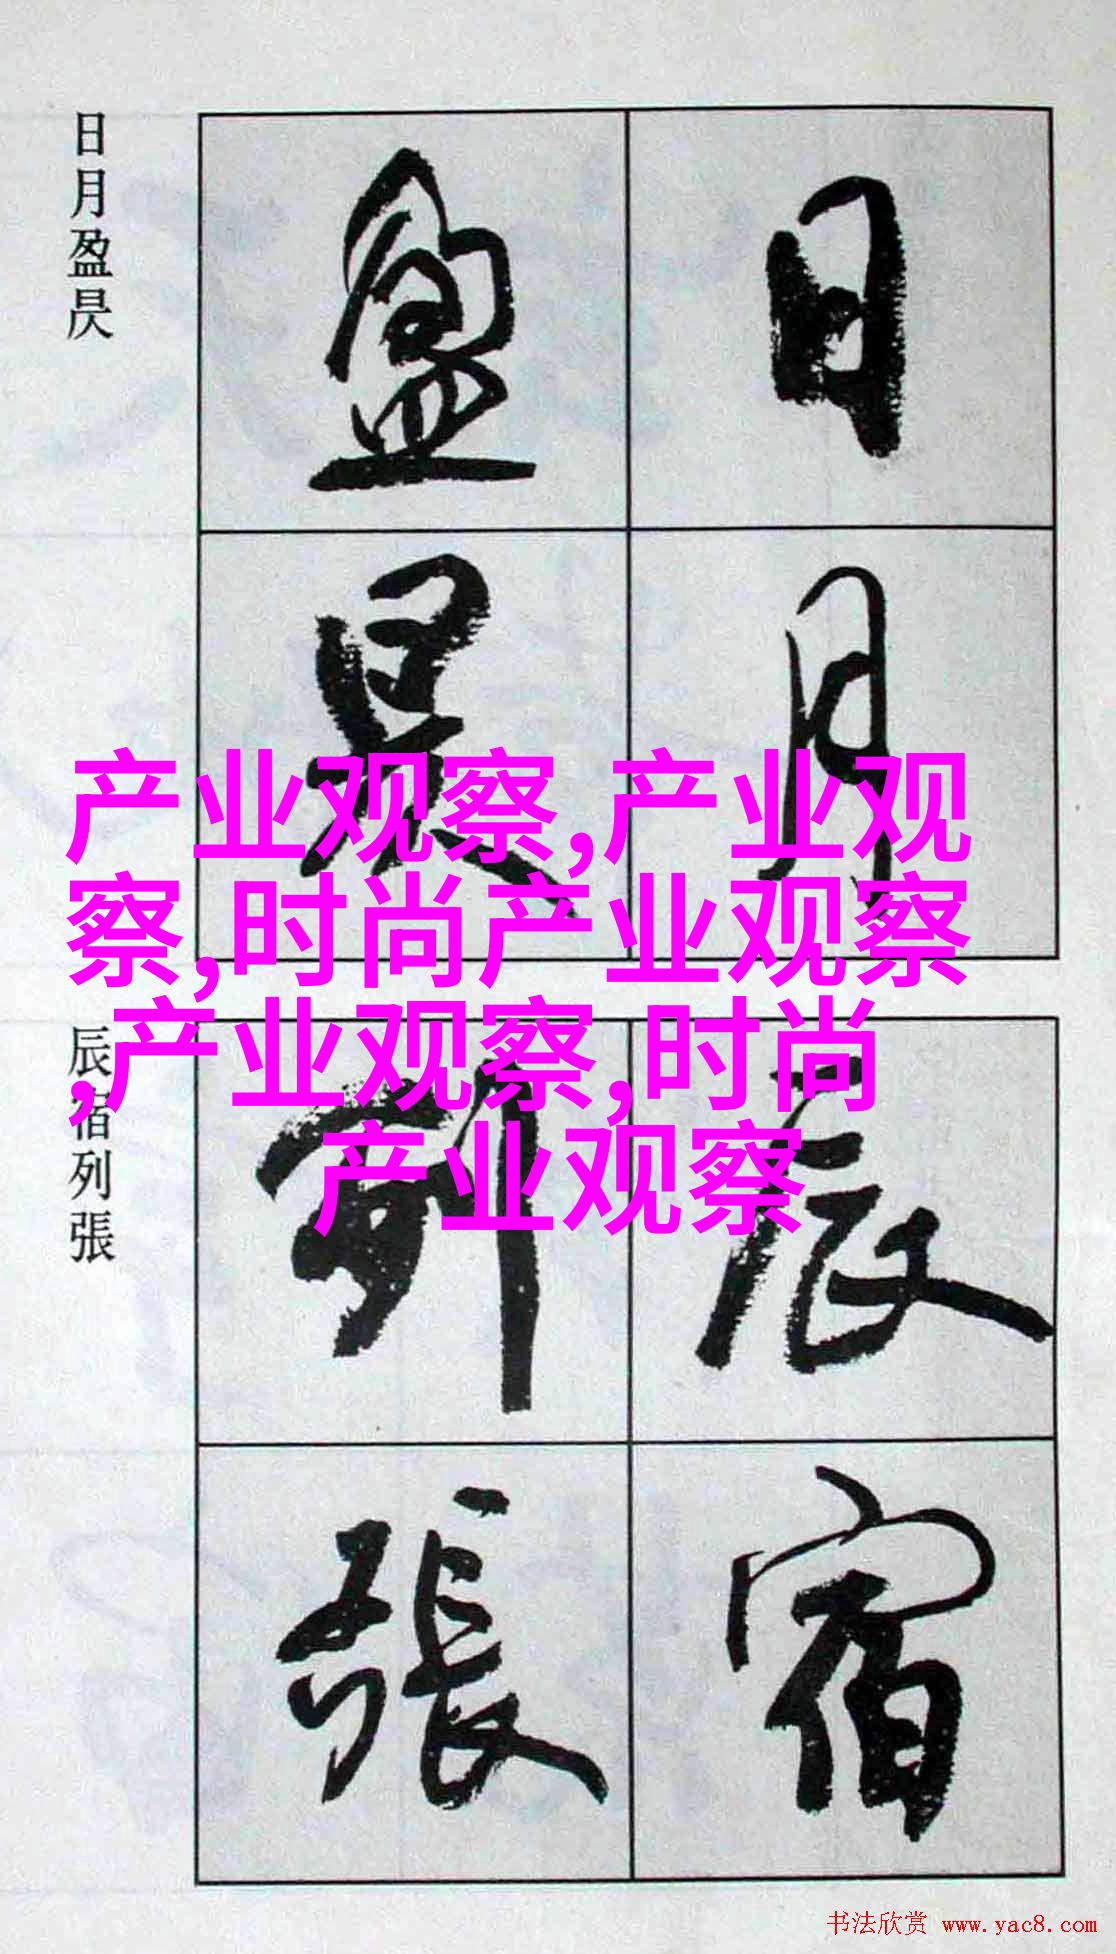 日月
盈昃
日月盈昃
辰宿
列張
辰宿列張
产业观察,产业观
察,时尚产业观察
,产业观察,时尚
产业观察
书法欣赏 www.yac8.com